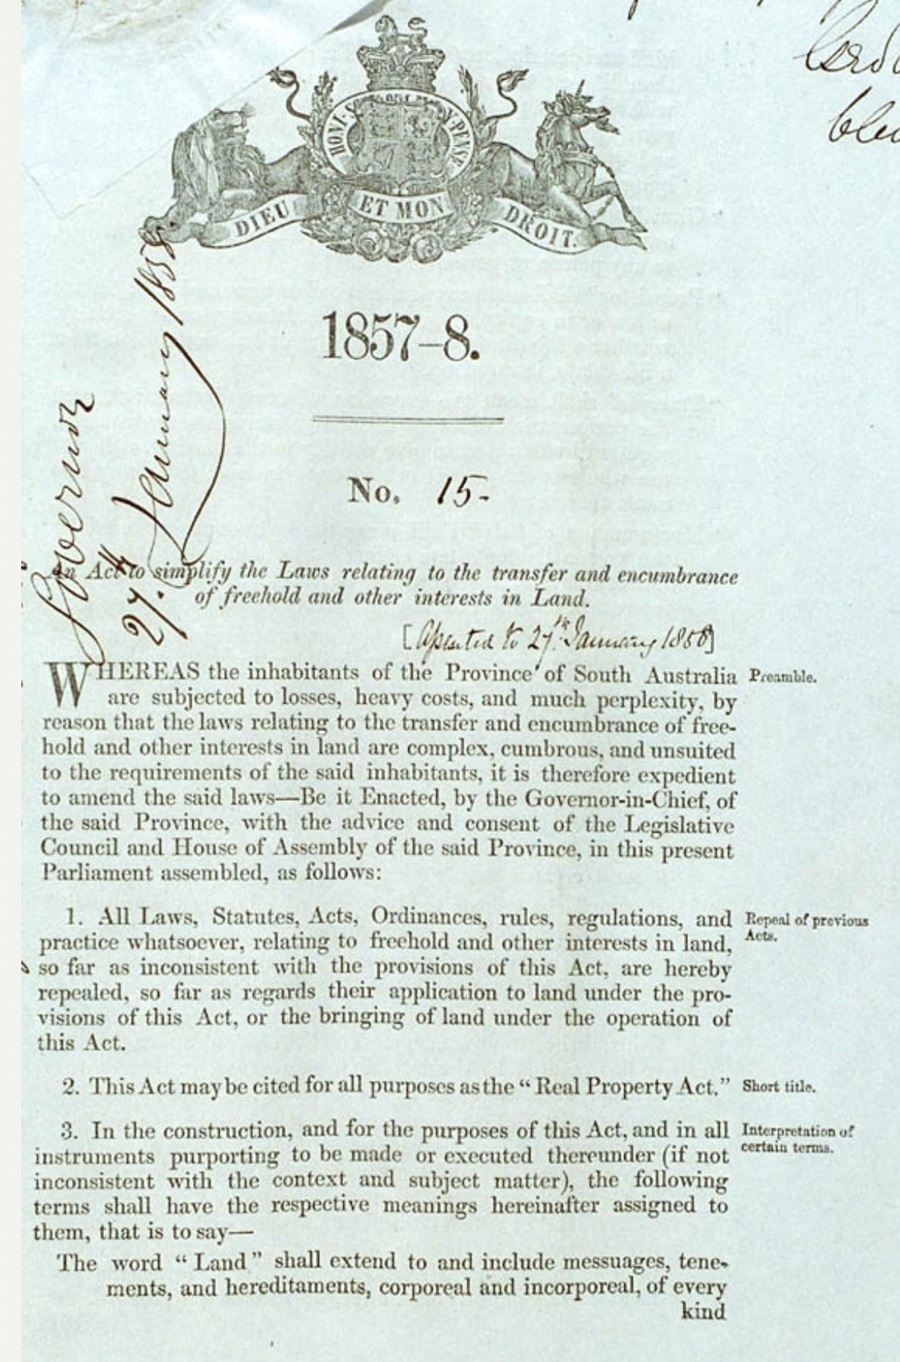 HONI SOIT Y PENSE
DIEU ET MON DROIT.
1857-8.
Governor
27th January 1858
No. 15.
An Act to simplify the Laws relating to the transfer and encumbrance
of freehold and other interests in Land.
[Assented to 27th January 1858]
WHEREAS the inhabitants of the Province of South Australia
Preamble.
are subjected to losses, heavy costs, and much perplexity, by
reason that the laws relating to the transfer and encumbrance of free-
hold and other interests in land are complex, cumbrous, and unsuited
to the requirements of the said inhabitants, it is therefore expedient
to amend the said laws—Be it Enacted, by the Governor-in-Chief, of
the said Province, with the advice and consent of the Legislative
Council and House of Assembly of the said Province, in this present
Parliament assembled, as follows:
1. All Laws, Statutes, Acts, Ordinances, rules, regulations, and
Repeal of previous
Acts.
practice whatsoever, relating to freehold and other interests in land,
so far as inconsistent with the provisions of this Act, are hereby
repealed, so far as regards their application to land under the pro-
visions of this Act, or the bringing of land under the operation of
this Act.
2. This Act may be cited for all purposes as the “Real Property Act.”
Short title.
3. In the construction, and for the purposes of this Act, and in all
Interpretation of
certain terms.
instruments purporting to be made or executed thereunder (if not
inconsistent with the context and subject matter), the following
terms shall have the respective meanings hereinafter assigned to
them, that is to say—
The word “Land” shall extend to and include messuages, tene-
ments, and hereditaments, corporeal and incorporeal, of every
kind